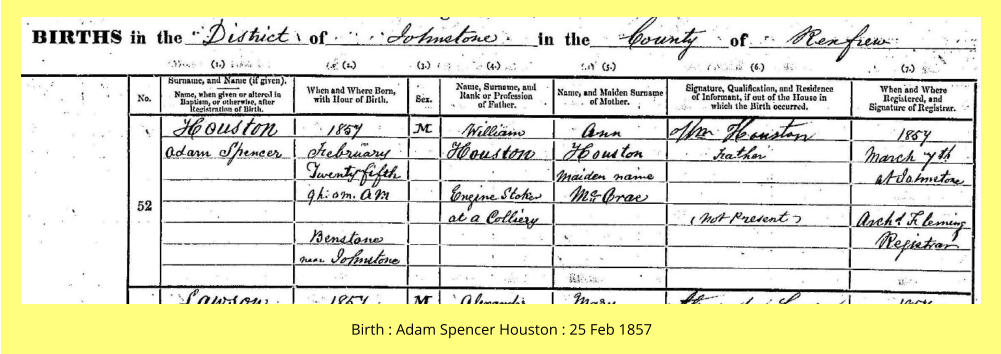 BIRTHS in the District of Johnstone in the County of Renfrew
(1.) (2.) (3.) (4.) (5.) (6.) (7.)
No.
Surname, and Name (if given).
Name, when given or altered in
Baptism, or otherwise, after
Registration of Birth.
When and Where Born,
with Hour of Birth.
Sex.
Name, Surname, and
Rank or Profession
of Father.
Name, and Maiden Surname
of Mother.
Signature, Qualification, and Residence
of Informant, if out of the House in
which the Birth occurred.
When and Where
Registered, and
Signature of Registrar.
52
Houston
Adam Spencer
1857
February
Twenty fifth
9h. 0m. AM
Benstone
near Johnstone
M
William
Houston
Engine Stoker
at a Colliery
Ann
Houston
Maiden name
Wm Houston
Father
(Not Present)
1857
March 7th
at Johnstone
Archd. Fleming
Registrar
Lawson 1857 M Mary
Birth : Adam Spencer Houston : 25 Feb 1857